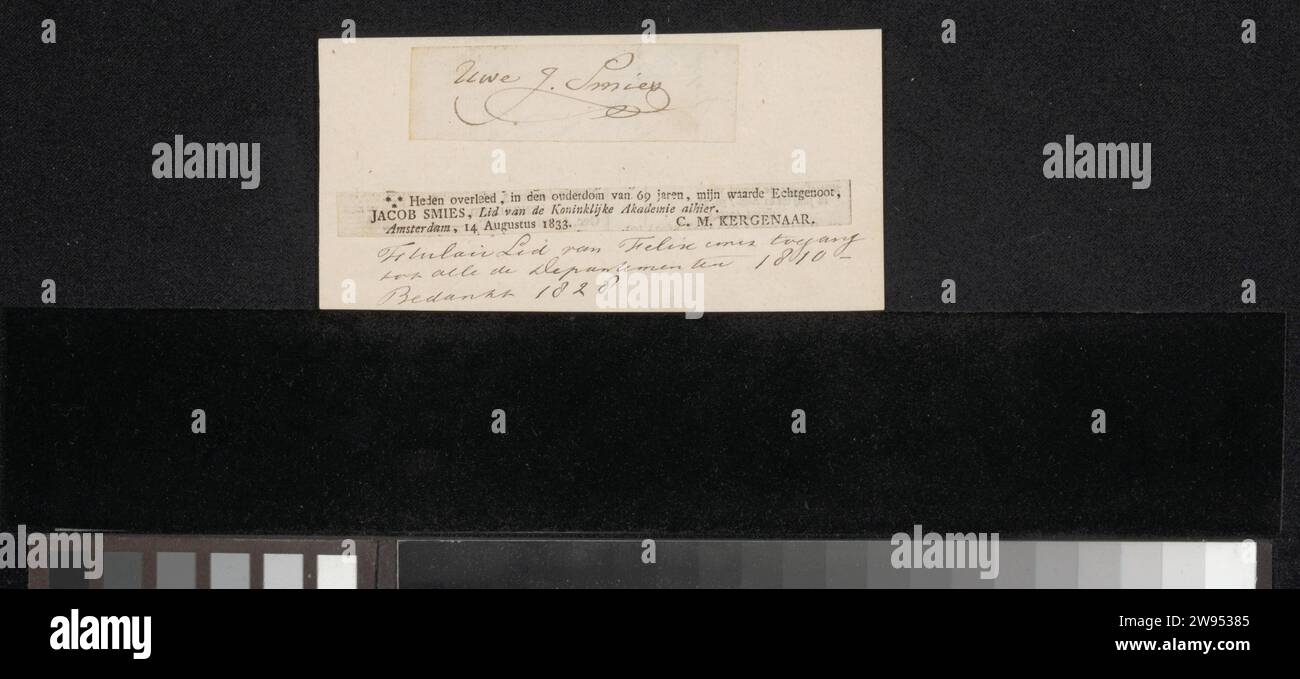 Uwe J. Smies
*** Heden overleed, in den ouderdom van 69 jaren, mijn waarde Echtgenoot,
JACOB SMIES, Lid van de Koninklijke Akademie alhier.
Amsterdam, 14 Augustus 1833. C. M. KERGENAAR.
Titulair Lid van Felix met toegang
tot alle de Departementen 1810 –
Bedankt 1828
alamy
alamy
alamy
Image ID: 2W95385
www.alamy.com